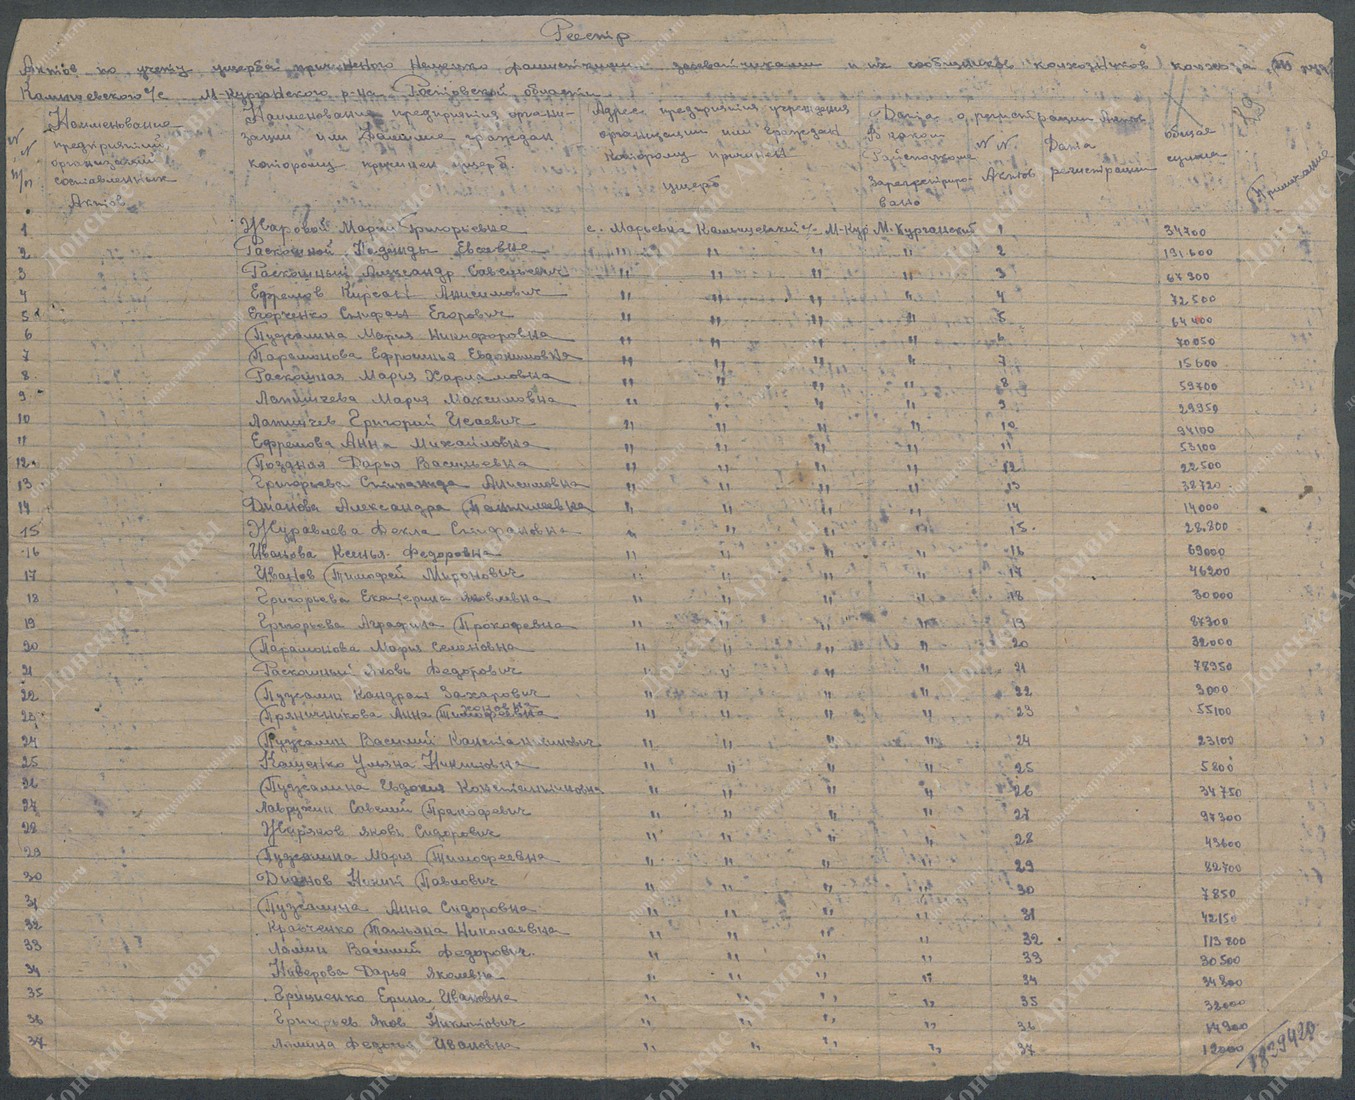 Реестр
Актов по учету ущерба причиненного Немецко фашистскими захватчиками и их сообщниками колхозников колхоза
Камышевского с/с М-Курганского р-на Ростовской области
№ № п/п
Наименование предприятий организаций составленных Актов
Наименование предприятия организации или Фамилие граждан которому причинен ущерб.
Адрес предприятия учреждения организации или граждан которому причинен ущерб
Дата о регистрации Актов
В каком Райисполкоме зарегистрировано
N N Актов
Дата регистрации
Общая сумма
Примечание
1 Уваровой Марии Григорьевне с. Марьевка Камышевский с/с М-Кур М-Курганский 1 34700
2 Раскошной Надежды Евсеевне " " " " 2 191.600
3 Раскошный Александр Савельевич " " " " 3 67900
4 Ефремов Кирсан Анисимович " " " " 4 72500
5 Егорченко Стифан Егорович " " " " 5 64400
6 Пузжалина Мария Никифоровна " " " " 6 70050
7 Парамонова Ефросинья Евдокимовна " " " " 7 15600
8 Раскошная Мария Харламовна " " " " 8 59700
9 Лапшичева Мария Максимовна " " " " 9 29950
10 Лапшичев Григорий Исаевич " " " " 10 94100
11 Ефремова Анна Михайловна " " " " 11 53100
12 Поздная Дарья Васильевна " " " " 12 22500
13 Григорьева Стипанида Анисимовна " " " " 13 38720
14 Дианова Александра Пантилеевна " " " " 14 14000
15 Журавлева Фекла Стифановна " " " " 15 28.800
16 Иванова Ксенья Федоровна " " " " 16 69000
17 Иванов Тимофей Миронович " " " " 17 46200
18 Григорьева Екатерина Яковлевна " " " " 18 30000
19 Григорьева Аграфина Прокофевна " " " " 19 87300
20 Парамонова Марья Семоновна " " " " 20 32000
21 Раскошный Яковь Федотович " " " " 21 78950
22 Пузжалин Кандрат Захарович " " " " 22 3000
23 Пряничникова Анна Тимофеевна " " " " 23 55100
24 Пузжалин Василий Константинович " " " " 24 23100
25 Кащенко Ульяна Никитовна " " " " 25 5800
26 Пузжалина Евдокия Константиновна " " " " 26 34750
27 Лавружин Савелий Пракофевич " " " " 27 97300
28 Яковь Сидорович " " " " 28 49600
29 Пузжалина Мария Тимофеевна " " " " 29 82700
30 Дианов Павлович " " " " 30 7850
31 Пузжалина Анна Сидоровна " " " " 31 42150
32 Кравченко Татьяна Николаевна " " " " 32 113800
33 Лямин Василий Федорович " " " " 33 30500
34 Неверова Дарья Яковлевна " " " " 34 34800
35 Гриценко Ерина Ивановна " " " " 35 32000
36 Григорьев Яков Никитович " " " " 36 14900
37 Лямина Федосья Ивановна " " " " 37 12000
1839420
Донские Архивы
donarch.ru